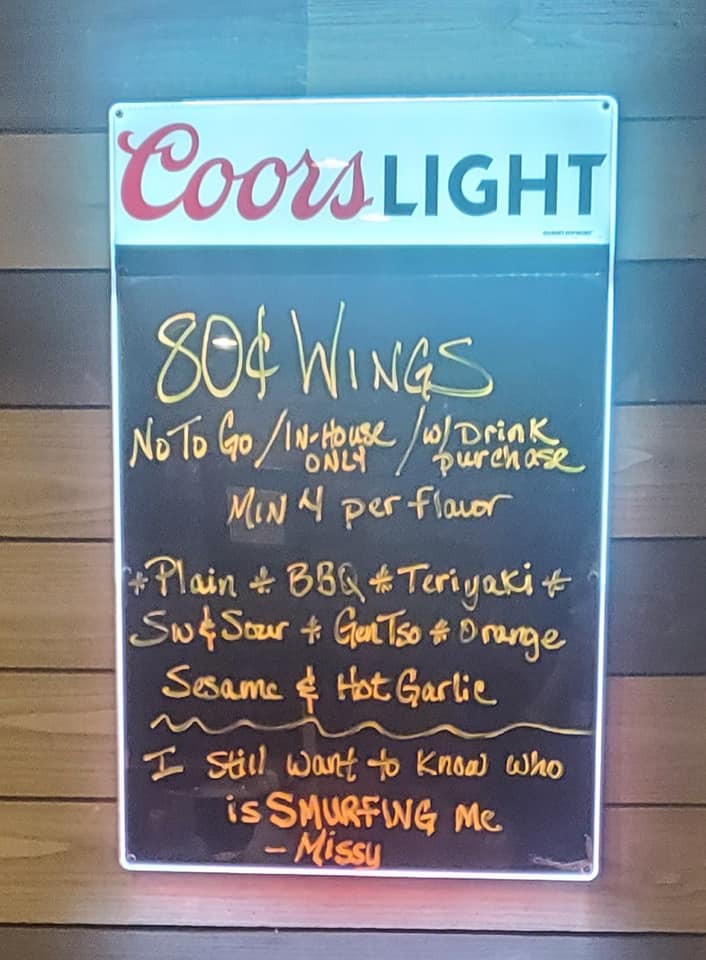 Coors LIGHT
80¢ WINGS
No To Go / IN-HOUSE ONLY / w/ Drink purchase
MIN 4 per flavor
*Plain * BBQ * Teriyaki *
Sw & Sour * Gen Tso * Orange
Sesame & Hot Garlic
I Still want to know who
is SMURFING Me
- Missy